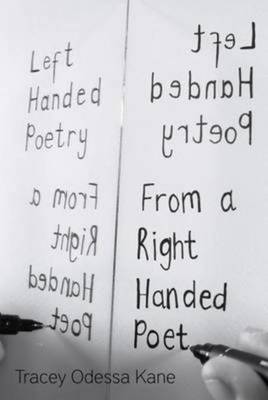 Left
Handed
Poetry
From a
Right
Handed
Poet
Left
Handed
Poetry
From a
Right
Handed
Poet
Tracey Odessa Kane